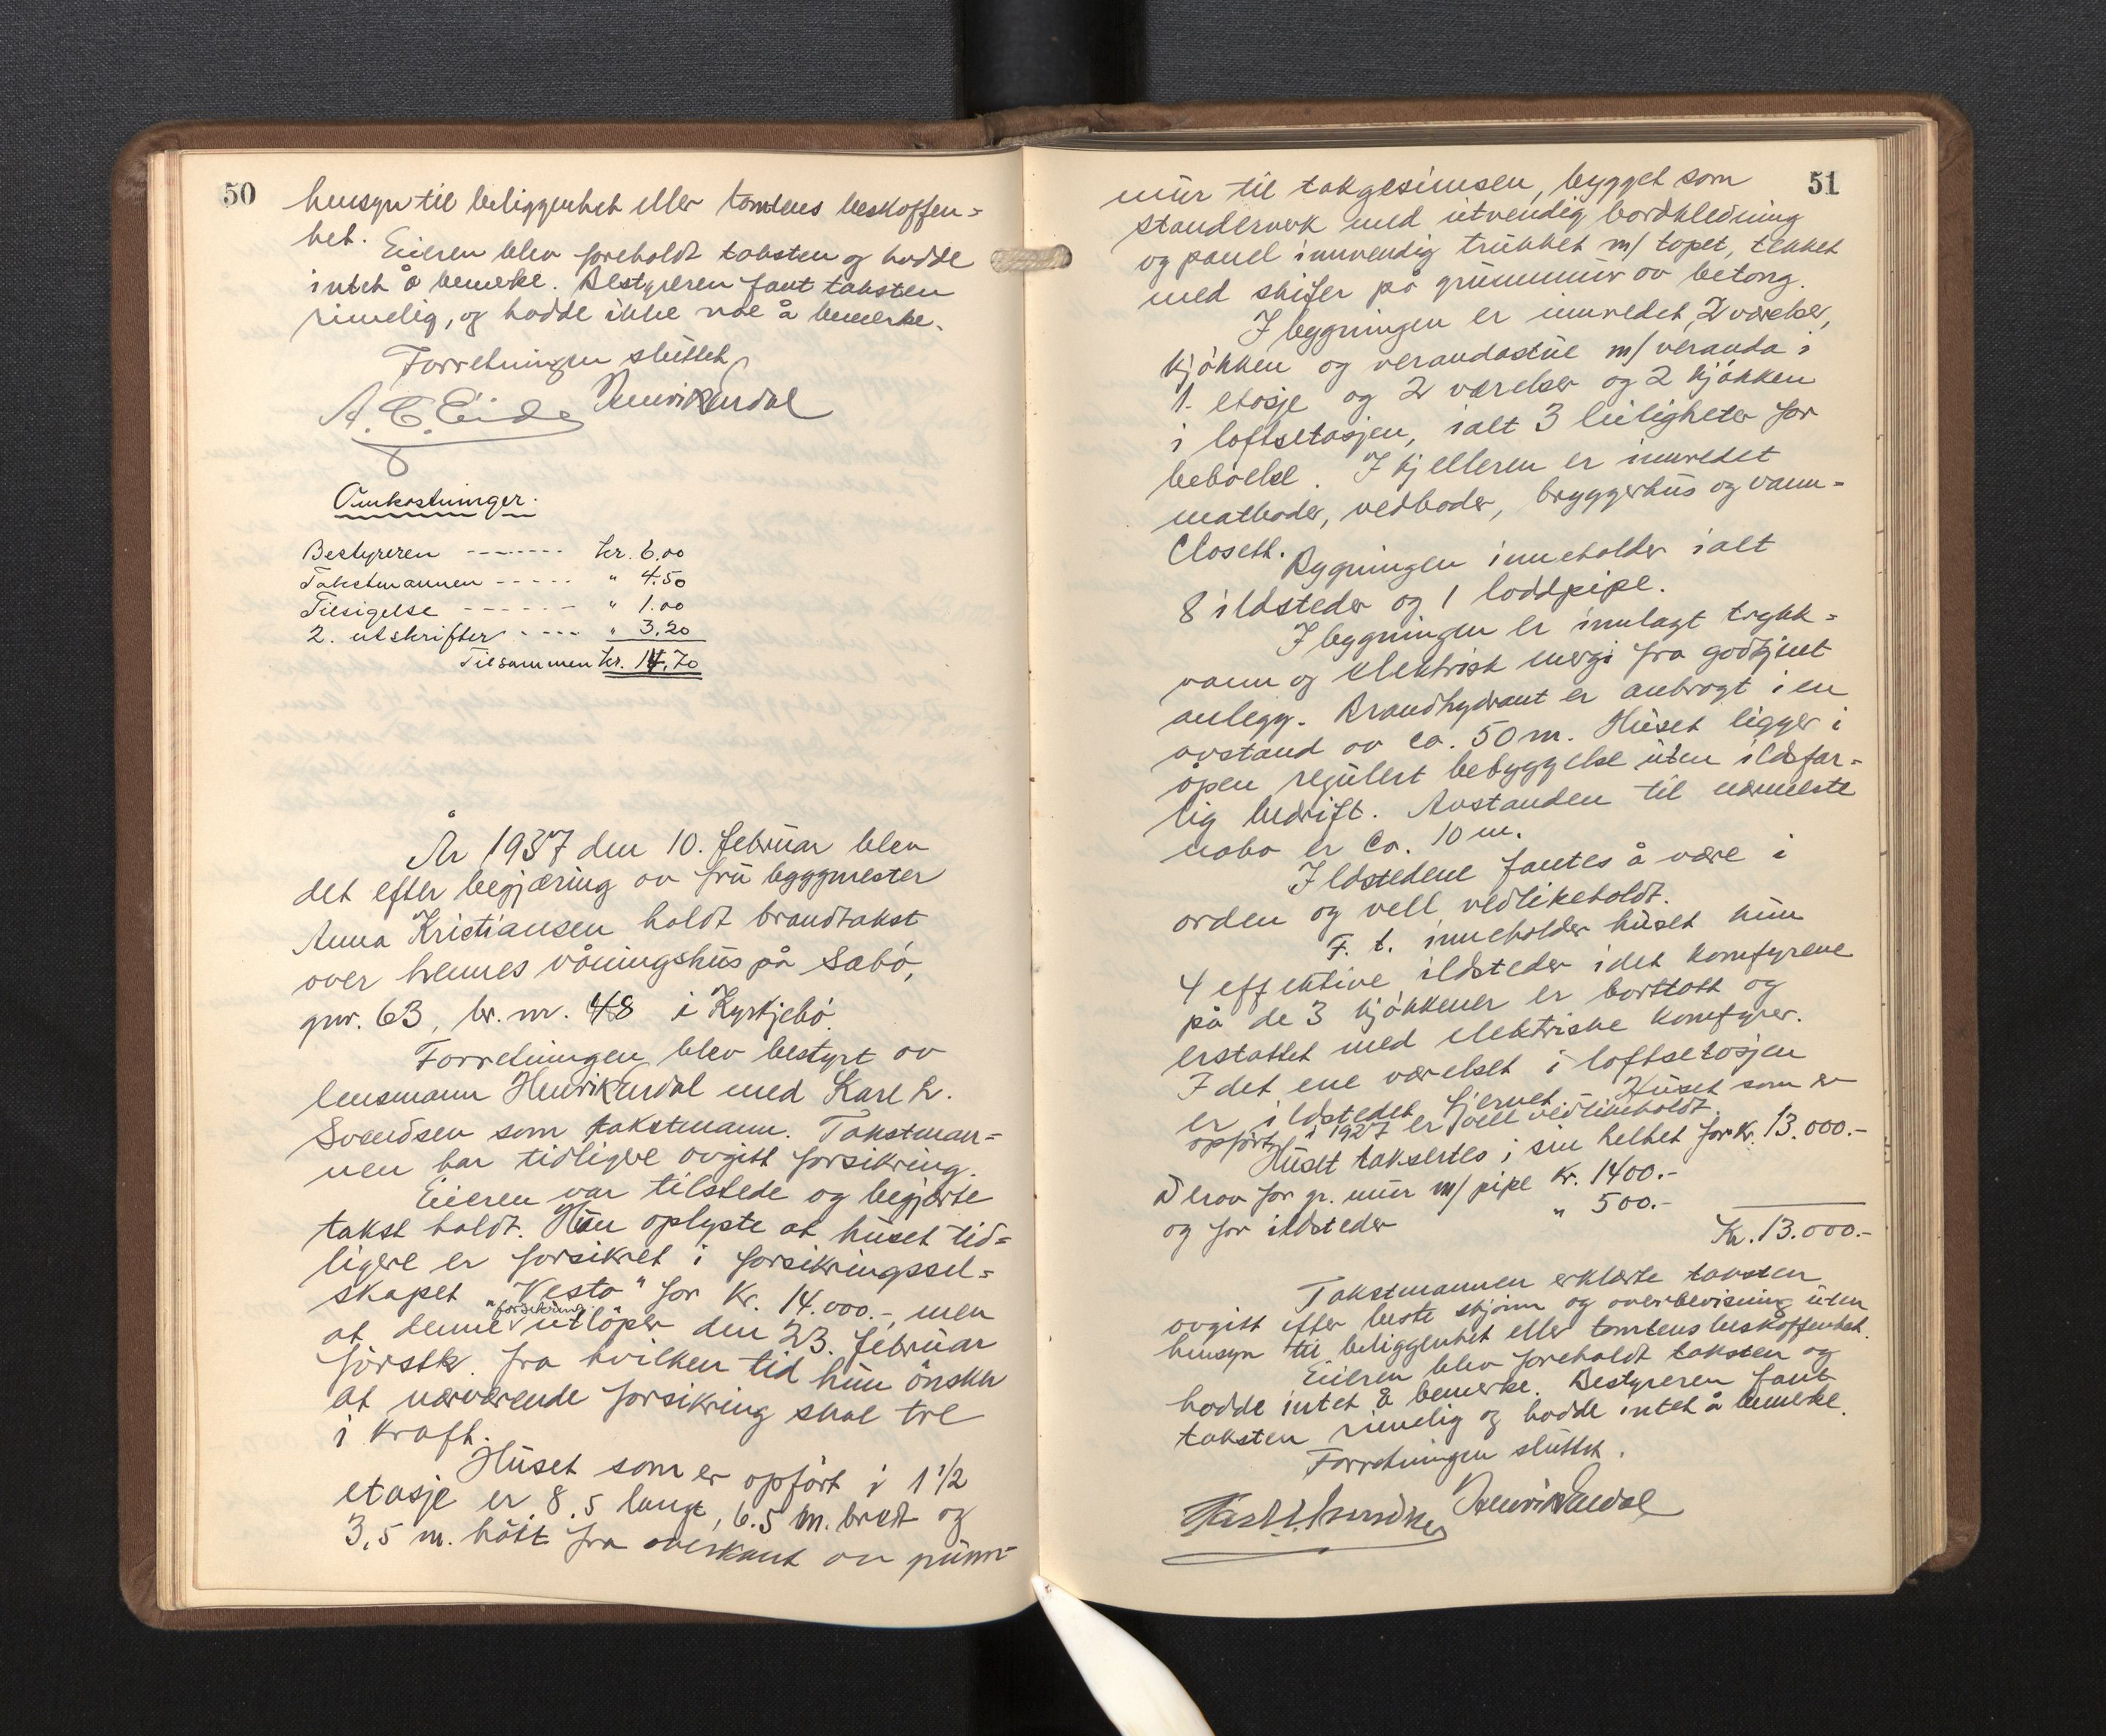 50
hensyn til beliggenhet eller tomtens beskaffen=
het.
Eieren blev foreholdt taksten og hadde
intet å bemerke. Bestyreren fant taksten
rimelig, og hadde ikke noe å bemerke.
Forretningen sluttet
A. E. Eide Henrik Erdal
Omkostninger.
Bestyreren ------- kr. 6.00
Takstmannen ----- " 4.50
Tilsigelse ------ " 1.00
2. utskrifter ---- " 3.20
Tilsammen kr. 14.70
År 1937 den 10. februar blev
det efter begjæring av fru byggmester
Anna Kristiansen holdt brandtakst
over hennes våningshus på Sæbø,
gnr. 63, br. nr. 48 i Kyrkjebø.
Forretningen blev bestyrt av
lensmann Henrik Erdal med Karl L.
Svendsen som takstmann. Takstman=
nen har tidligere avgitt forsikring.
Eieren var tilstede og begjærte
takst holdt. Hun oplyste at huset tid=
ligere er forsikret i forsikringssel=
skapet "Vesta" for kr. 14.000.-, men
at denne forsikring utløper den 23. februar
førstk. fra hvilken tid hun ønsker
at nærværende forsikring skal tre
i kraft.
Huset som er opført i 1 1/2
etasje er 8.5 langt, 6.5 m. bredt og
3.5 m. høit fra overkant av grunn-
51
mur til takgesimsen, bygget som
standerverk med utvendig bordkledning
og panel innvendig trukket m/ tapet, tekket
med skifer på grunnmur av betong.
I bygningen er innredet 2 værelser,
kjøkken og verandastue m/ veranda i
1. etasje og 2 værelser og 2 kjøkken
i loftsetasjen, ialt 3 leiligheter for
beboelse. I kjelleren er innredet
matboder, vedboder, bryggerhus og vann-
Closett.
Bygningen inneholder ialt
8 ildsteder og 1 loddpipe.
I bygningen er innlagt trykk=
vann og elektrisk energi fra godkjent
anlegg. Brandhydrant er anbragt i en
avstand av ca. 50 m. Huset ligger i
åpen regulert bebyggelse uten ildsfar=
lig bedrift. Avstanden til nærmeste
nabo er Ca. 10 m.
Ildstedene fantes å være i
orden og vell vedlikeholdt.
F. t. inneholder huset kun
4 effektive ildsteder idet komfyrene
på de 3 kjøkkener er borttatt og
erstattet med elektriske komfyrer.
I det ene værelset i loftsetasjen
er ildstedet fjernet. Huset som er
opført i 1927 er vell vedlikeholdt.
Huset taksertes i sin helhet for kr. 13.000.-
Derav for gr. mur m/ pipe kr. 1400.-
og for ildsteder " 500.-
Kr. 13.000.-
Takstmannen erklærte taksten
avgitt efter beste skjønn og overbevisning uten
hensyn til beliggenhet eller tomtens beskaffenhet.
Eieren blev foreholdt taksten og
hadde intet å bemerke. Bestyreren fant
taksten rimelig og hadde intet å bemerke.
Forretningen sluttet.
Karl L. Svendsen Henrik Erdal